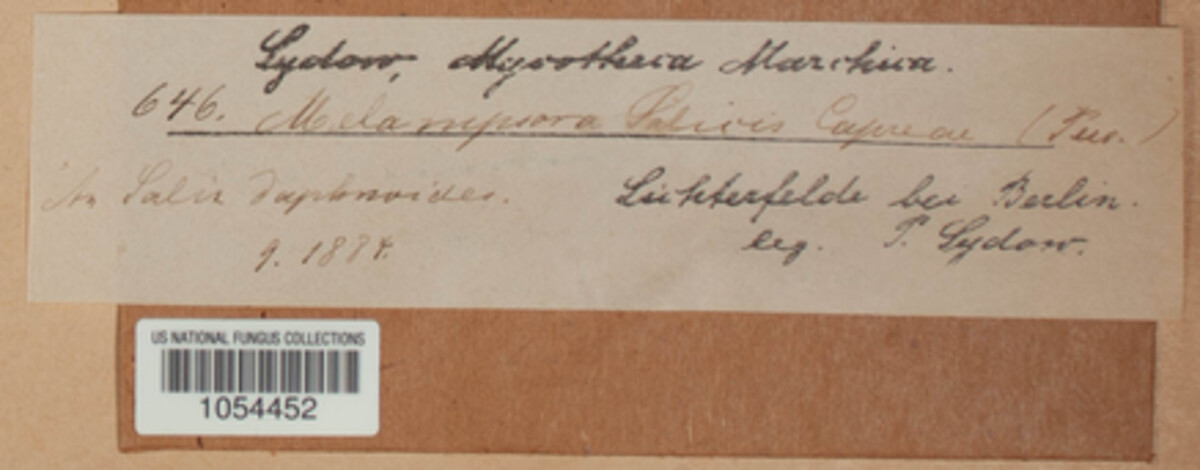 Sydow, Mycotheca Marchica.
646. Melampsora Salicis Capreae (Pers.)
An Salix daphnoides.
Lichterfelde bei Berlin.
9. 1884.
leg. P. Sydow.
US NATIONAL FUNGUS COLLECTIONS
1054452